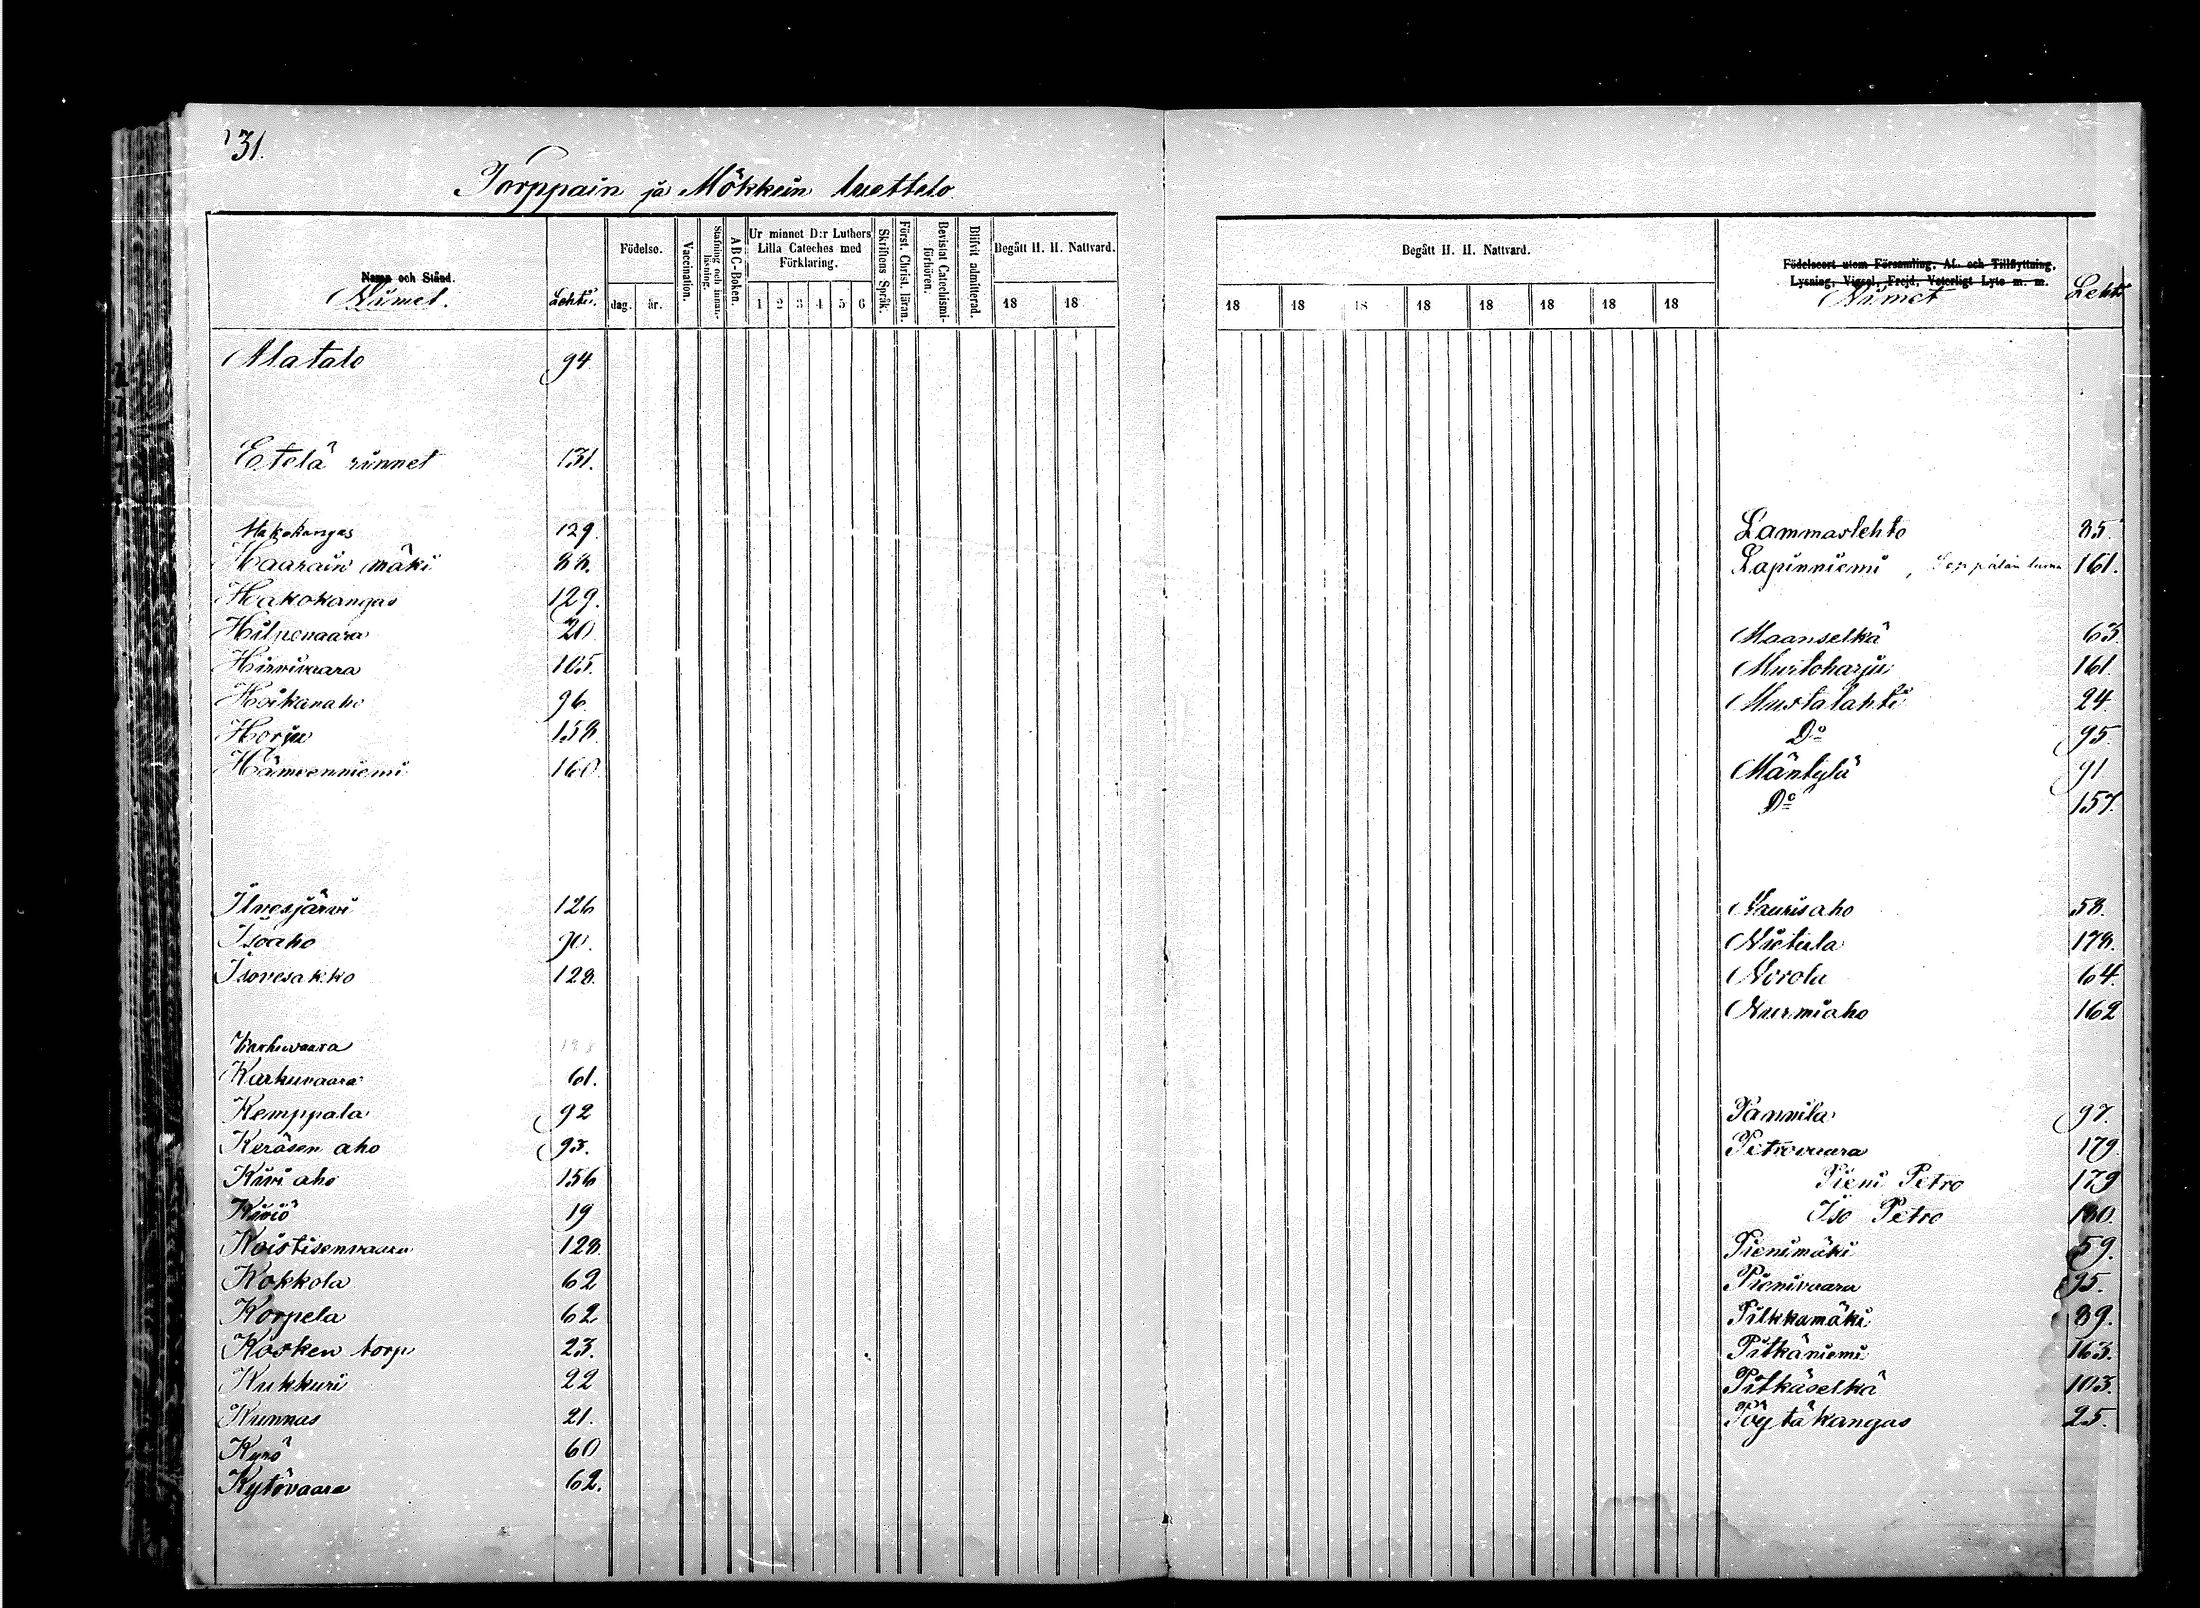 131.
Torppain ja Mökkein luettelo
Namn och Stånd.
Nimet.
Lehti.
Födelse.
dag. år.
Vaccination.
Stafning och innanläsning.
ABC-Boken.
Ur minnet D:r Luthers Lilla Cateches med Förklaring.
1 2 3 4 5 6
Skriftens Språk.
Först. Christ. läran.
Bevistat Catechismiförhören.
Blifvit admitterad.
Begått H. H. Nattvard.
18 18
Alatalo 94.
Etelä rinnet 131.
Hakokangas 129.
Haarain mäki 88.
Hakokangas 129.
Hilvevaara 20
Hirvivaara 105.
Hoikanaho 96.
Horju 158.
Hämeenniemi 160.
Ilvesjärvi 126
Isoaho 90.
Isovesakko 128.
Karhuvaara
Karhuvaara 61.
Kemppala 92
Keräsen aho 93.
Kivi aho 156
Kiviö 19
Koistisenvaara 128.
Kokkola 62
Korpela 62
Kosken torp 23.
Kukkuri 22
Kunnas 21.
Kyrö 60
Kytövaara 62.
Begått H. H. Nattvard.
18 18 18 18 18 18 18 18
Födelseort utom Församling, Af- och Tillflyttning, Lysning, Vigsel, Frejd, Veterligt Lyte m. m.
Nimet
Lehti
Lammaslehto 85
Lapinniemi, Seppälän 161.
Maanselkä 63
Mustoharju 161.
Mustalahti 24
Do 95.
Mäntylä 91
Do 157.
Naurisaho 58.
Nietula 178.
Norola 64.
Nurmiaho 162
Pannila 97.
Petrovaara 179.
Pieni Petro 179
Iso Petro 180.
Pienimäki 59.
Pienivaara 95.
Pilkkamäki 89.
Pitkäniemi 163.
Pitkäselkä 103.
Pöytäkangas 25.